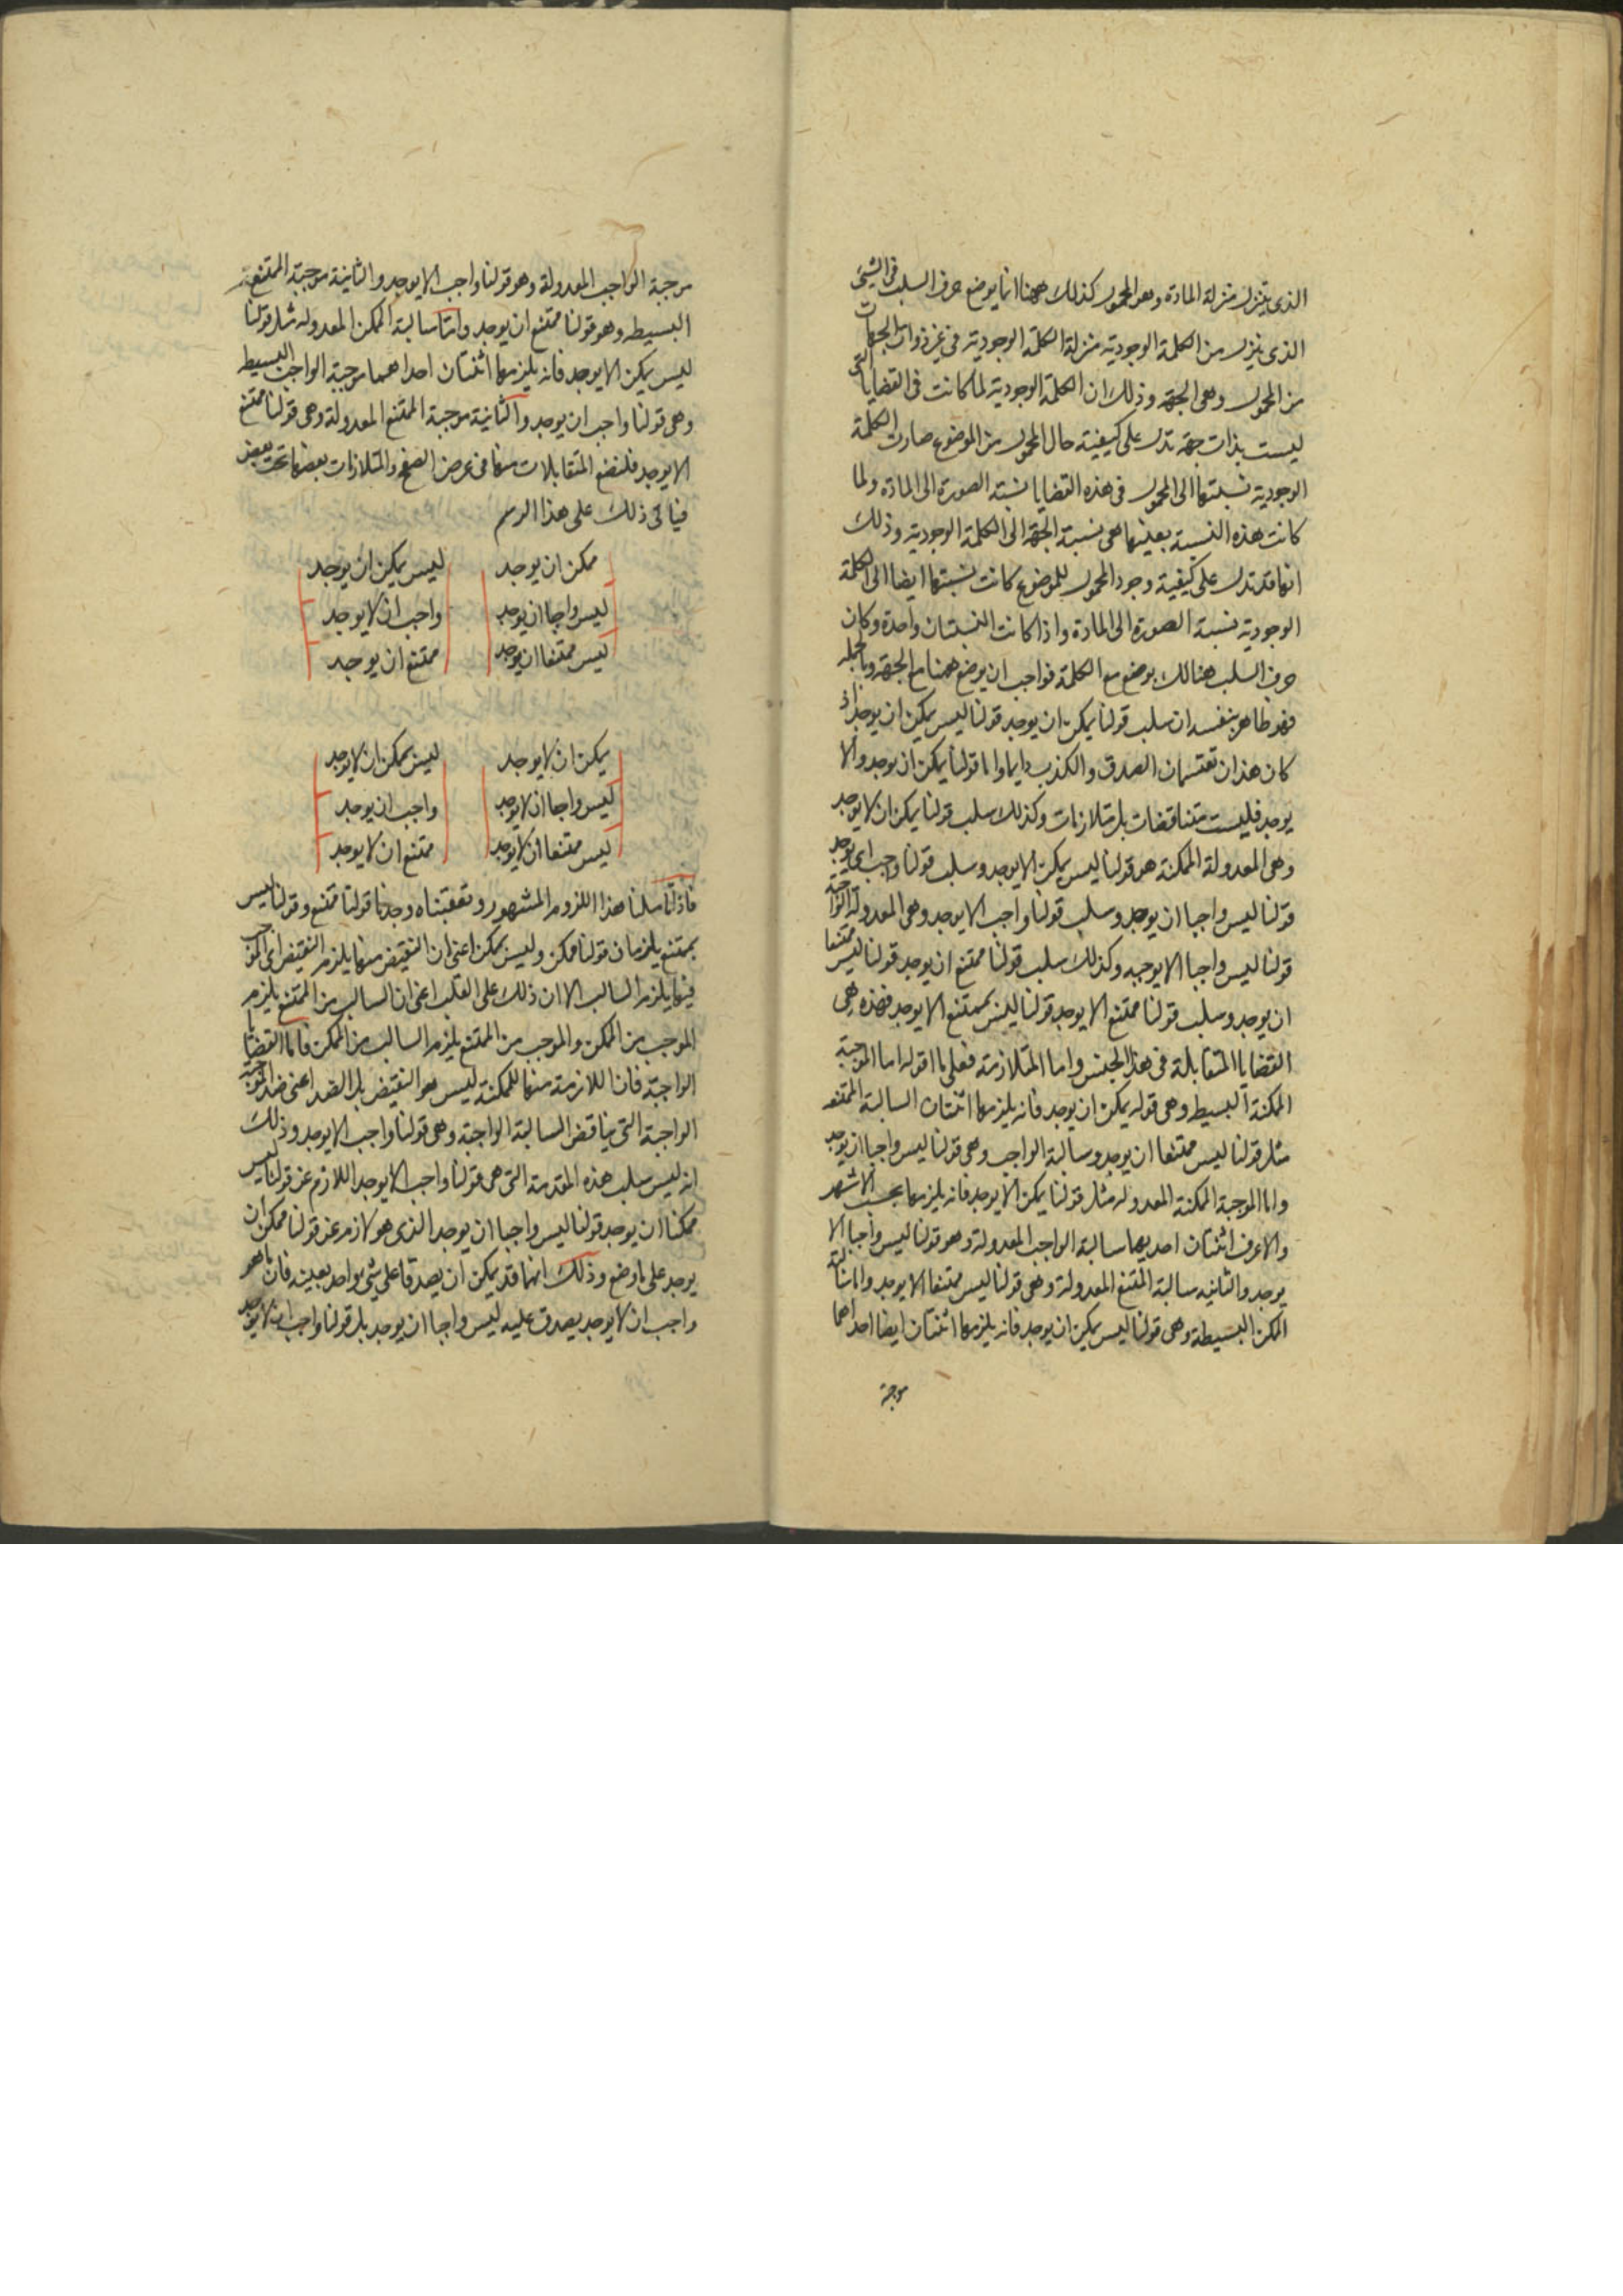 الذى يتنزل منزلة المادة وهو المحمول كذلك ههنا انما يوضع حرف السلب فى الشئ
الذى ينزل من الكلمة الوجودية منزلة الكلمة الوجودية فى غير ذوات الجهات
من المحمول وهى الجهة وذلك ان الكلمة الوجودية لما كانت فى القضايا التى
ليست بذات جهة تدل على كيفية حال المحمول من الموضوع صارت الكلمة
الوجودية نسبتها الى المحمول فى هذه القضايا نسبة الصورة الى المادة ولما
كانت هذه النسبة بعينها هى نسبة الجهة الى الكلمة الوجودية وذلك
انها قد تدل على كيفية وجود المحمول للموضوع كانت نسبتها ايضا الى الكلمة
الوجودية نسبة الصورة الى المادة واذا كانت النسبتان واحدة وكان
حرف السلب هنالك يوضع مع الكلمة فواجب ان يوضع ههنا مع الجهة وبالجملة
فهو ظاهر بنفسه ان سلب قولنا يمكن ان يوجد قولنا ليس يمكن ان يوجد اذ
كان هذان تقتسمان الصدق والكذب دايما واما قولنا يمكن ان يوجد والا
يوجد فليست متناقضات بل متلازمات وكذلك سلب قولنا يمكن ان لا يوجد
وهى المعدولة الممكنة هو قولنا ليس يمكن الا يوجد وسلب قولنا واجب ان يوجد
قولنا ليس واجبا ان يوجد وسلب قولنا واجب الا يوجد وهى المعدولة الواجبة
قولنا ليس واجبا الا يوجد وكذلك سلب قولنا ممتنع ان يوجد قولنا ليس ممتنعا
ان يوجد وسلب قولنا ممتنع الا يوجد قولنا ليس بممتنع الا يوجد فهذه هى
القضايا المتقابلة فى هذا الجنس واما المتلازمة فعلى ما اقوله اما الموجبة
الممكنة البسيطه وهى قوله يمكن ان يوجد فانه يلزمها اثنتان السالبة الممتنعه
مثل قولنا ليس ممتنعا ان يوجد وسالبة الواجب وهى قولنا ليس واجبا ان يوجد
واما الموجبة الممكنة المعدوله مثل قولنا يمكن الا يوجد فانه يلزمها بحسب الاشهر
والاعرف اثنتان احديهما سالبة الواجب المعدولة وهو قولنا ليس واجبا الا
يوجد والثانيه سالبة الممتنع المعدولة وهى قولنا ليس ممتنعا الا يوجد واما سالبة
الممكن البسيطة وهى قولنا ليس يمكن ان يوجد فانه يلزمها اثنتان ايضا احداهما
موجبة
موجبة الواجب المعدولة وهو قولنا واجب الا يوجد والثانية موجبة الممتنع
البسيطه وهو قولنا ممتنع ان يوجد واما سالبة الممكن المعدوله مثل قولنا
ليس يمكن الا يوجد فانه يلزمها اثنتان احداهما موجبة الواجب البسيط
وهى قولنا واجب ان يوجد والثانية موجبة الممتنع المعدولة وهى قولنا ممتنع
الا يوجد فلنضع المتقابلات منها فى عرض الصفح والمتلازمات بعضها تحت بعض
فياتى ذلك على هذا الرسم
ممكن ان يوجد ليس يمكن ان يوجد
ليس واجبا ان يوجد واجب ان لا يوجد
ليس ممتنعا ان يوجد ممتنع ان يوجد
يمكن ان لا يوجد ليس يمكن ان لا يوجد
ليس واجبا ان لا يوجد واجب ان يوجد
ليس ممتنعا ان لا يوجد ممتنع ان لا يوجد
فاذ تاملنا هذا اللزوم المشهور وتعقبناه وجدنا قولنا ممتنع وقولنا ليس
بممتنع يلزمان قولنا ممكن وليس يمكن اعنى ان النقيض منها يلزم النقيض اى الموجب
فيها يلزم السالب الا ان ذلك على القلب اعنى ان السالب من الممتنع يلزم
الموجب من الممكن والموجب من الممتنع يلزم السالب من الممكن فاما القضايا
الواجبة فان اللازمة منها للممكنة ليس هو النقيض بل الضد اعنى ضد الموجبة
الواجبة التى يناقض السالبة الواجبة وهى قولنا واجب الا يوجد وذلك
انه ليس سلب هذه المقدمة التى هى قولنا واجب الا يوجد اللازم عن قولنا ليس
ممكنا ان يوجد قولنا ليس واجبا ان يوجد الذى هو لازم عن قولنا ممكن ان
يوجد على ما وضع وذلك انهما قد يمكن ان يصدقا على شئ واحد بعينه فان ما هو
واجب ان لا يوجد يصدق عليه ليس واجبا ان يوجد بل قولنا واجب ان لا يوجد